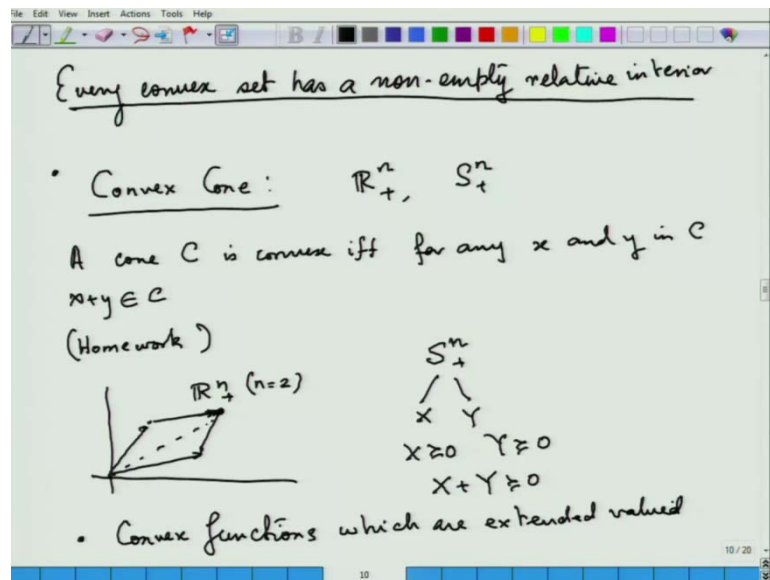 File Edit View Insert Actions Tools Help
Every convex set has a non-empty relative interior
• Convex Cone : ℝⁿ₊, Sⁿ₊
A cone C is convex iff for any x and y in C
x+y ∈ C
(Homework)
ℝⁿ₊ (n=2)
Sⁿ₊
X Y
X ≽ 0 Y ≽ 0
X + Y ≽ 0
• Convex functions which are extended valued
10 / 20
10